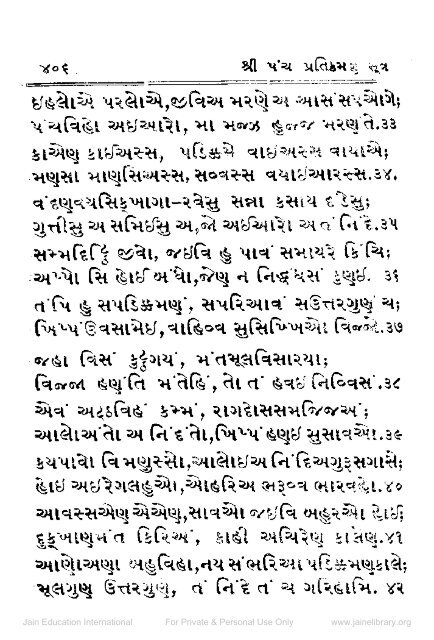 ૪૦૬ શ્રી પંચ પ્રતિક્રમણ સૂત્ર
ઇહલોએ પરલોએ,જીવિઅ મરણે અ આસંસપઓગે;
પંચવિહો અઇઆરો, મા મજ્ઝ હુજ્જ મરણંતે.૩૩
કાએણ કાઇઅસ્સ, પડિક્કમે વાઇઅસ્સ વાયાએ;
મણસા માણસિઅસ્સ, સવ્વસ્સ વયાઇઆરસ્સ.૩૪.
વંદણવયસિક્ખાગા-રવેસુ સન્ના કસાય દંડેસુ;
ગુત્તીસુ અ સમિઇસુ અ,જો અઇઆરો અ તં નિંદે.૩૫
સમ્મદિટ્ઠિ જીવો, જઇવિ હુ પાવં સમાયરે કિંચિ;
અપ્પો સિ હોઇ બંધો,જેણ ન નિદ્ધંધસં કુણઇ. ૩૬
તંપિ હુ સપડિક્કમણં, સપરિઆવં સઉત્તરગુણં ચ;
ખિપ્પં ઉવસામેઇ,વાહિવ્વ સુસિખ્ખિઓ વિજ્જો.૩૭
જહા વિસં કુટ્ઠગયં, મંતમૂલવિસારયા;
વિજ્જા હણંતિ મંતેહિં, તો તં હવઇ નિવ્વિસં.૩૮
એવં અટ્ઠવિહં કમ્મં, રાગદોસસમજ્જિઅં;
આલોઅંતો અ નિંદંતો,ખિપ્પં હણઇ સુસાવઓ.૩૯
કયપાવો વિ મણુસ્સો,આલોઇઅ નિંદિઅગુરૂસગાસે;
હોઇ અઇરેગલહુઓ,ઓહરિઅ ભરૂવ્વ ભારવહો. ૪૦
આવસ્સએણ એએણ,સાવઓ જઇવિ બહુરઓ હોઇ;
દુક્ખાણમંત કિરિઅં, કાહી અચિરેણ કાલેણ.૪૧
આલોઅણા બહુવિહા,નય સંભરિઆ પડિક્કમણકાલે;
મૂલગુણ ઉત્તરગુણે, તં નિંદે તં ચ ગરિહામિ. ૪૨
Jain Education International For Private & Personal Use Only www.jainelibrary.org